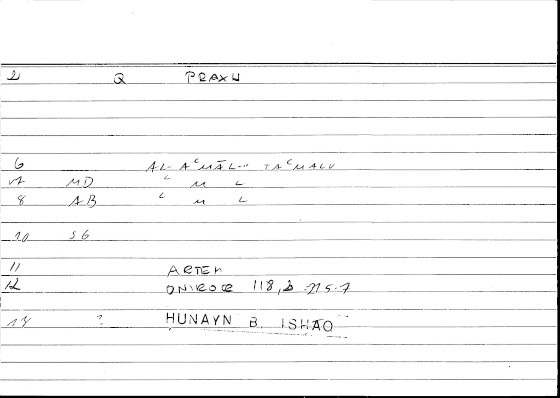 2 Q PRAXW
6 AL-AʿMĀL-- TAʿMALU
MD ʿ M L
8 AB ʿ M L
10 SG
11 ARTEM
12 ONIROCR 118, 215-7
14 ? HUNAYN B. ISHAQ